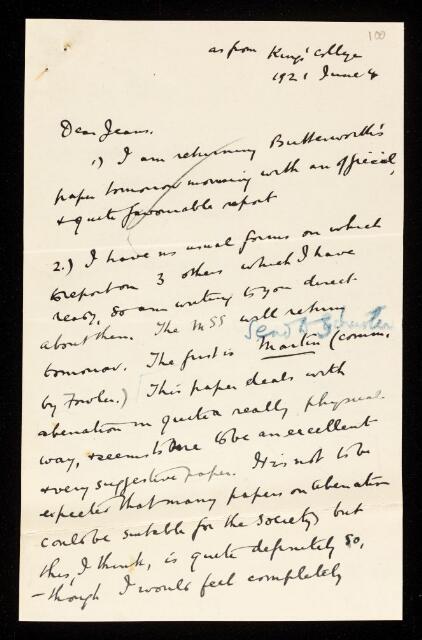 100
as from King's College
1921 June 4
Dear Jeans.
1) I am returning Butterworth's
paper tomorrow morning with an official,
& quite favourable report
2.) I have no usual forms on which
to report on 3 others which I have
ready, so am writing to you direct
about them. The MSS will return
Send to Schuster
tomorrow. The first is Martin (comm.
by Fowler.) This paper deals with
aberration in quite a really physical
way, & seems to me to be an excellent
& very suggestive paper. It is not to be
expected that many papers on aberration
could be suitable for the Society but
this, I think, is quite definitely so,
– though I would feel completely